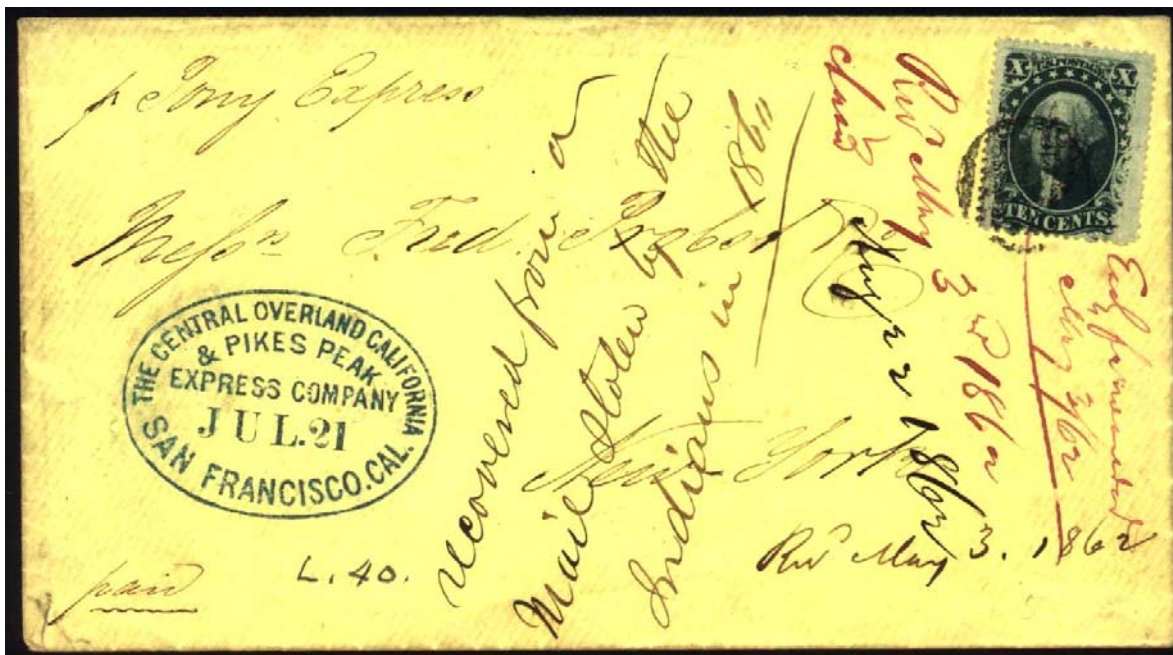 p Pony Express
Mess^rs Fred. Probst &
New York
paid
L. 40.
THE CENTRAL OVERLAND CALIFORNIA
& PIKES PEAK
EXPRESS COMPANY
JUL. 21
SAN FRANCISCO. CAL.
recovered from a
Mail stolen by the
Indians in 1860
Rec^d May 3^rd 1862
Aug 22 1862
May 3/62
Rec^d May 3. 1862
U.S. POSTAGE
X X
TEN CENTS